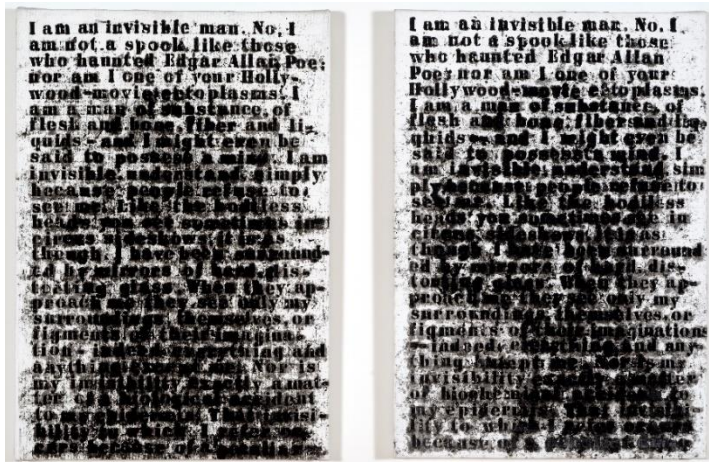 I am an invisible man. No, I
am not a spook like those
who haunted Edgar Allan Poe;
nor am I one of your Holly-
wood-movie ectoplasms. I
am a man of substance, of
flesh and bone, fiber and li-
quids- and I might even be
said to possess a mind. I am
invisible, understand, simply
because people refuse to
see me. Like the bodiless
circus sideshows, it is as
though I have been surround-
ed by mirrors of hard, dis-
torting glass. When they ap-
proach me they see only my
surroundings, themselves, or
figments of their imagina-
tion- indeed, everything and
anything except me. Nor is
my invisibility exactly a mat-
ter of a biochemical accident
to my epidermis. That invisi-
bility to which I refer
I am an invisible man. No, I
am not a spook like those
who haunted Edgar Allan
Poe; nor am I one of your
Hollywood-movie ectoplasms.
I am a man of substance, of
flesh and bone, fiber and li-
quids- and I might even be
said to possess a mind. I
am invisible, understand, sim
ply because people refuse to
see me. Like the bodiless
heads you sometimes see in
circus sideshows, it is as
though I have been surround
ed by mirrors of hard, dis-
torting glass. When they ap-
proach me they see only my
surroundings, themselves, or
figments of their imaginations
- indeed, everything and any-
thing except me. Nor is my
invisibility exactly a matter
of biochemical accident to
my epidermis. That invisibi-
lity to which I refer occurs
because of a